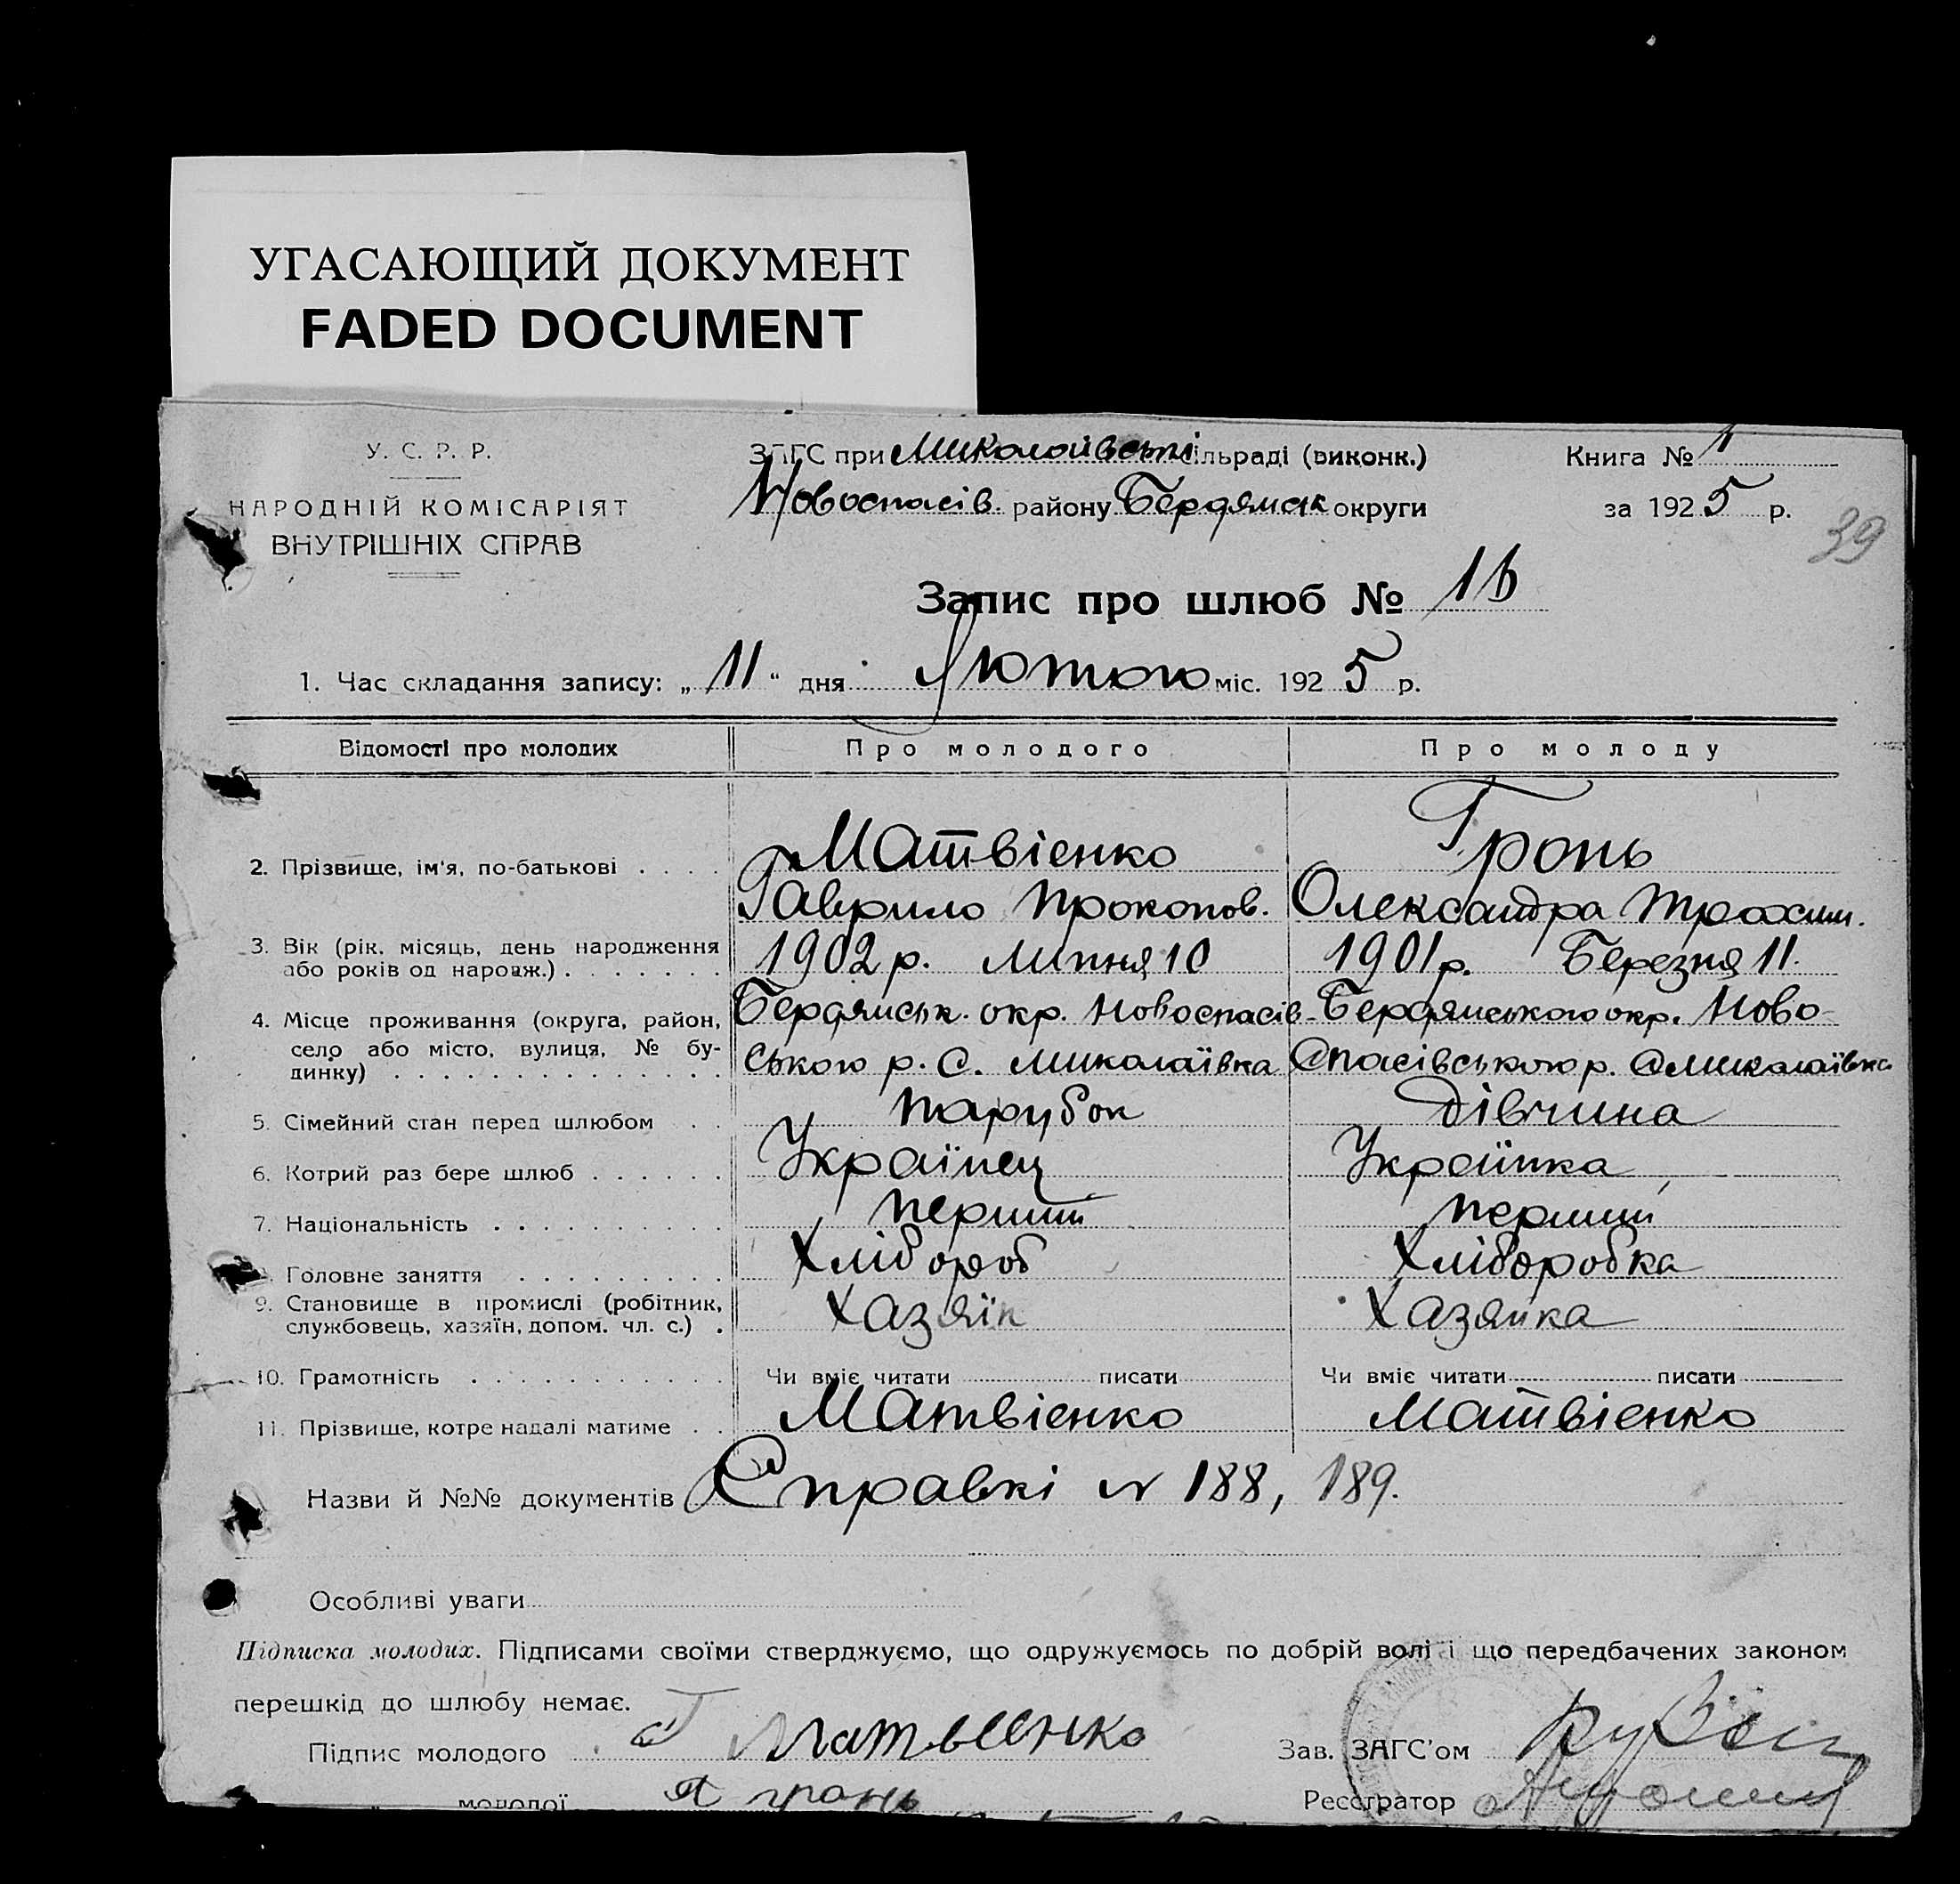 УГАСАЮЩИЙ ДОКУМЕНТ
FADED DOCUMENT
У. С. Р. Р.
НАРОДНІЙ КОМІСАРІЯТ
ВНУТРІШНІХ СПРАВ
ЗАГС при Миколаївські сільраді (виконк.)
Новоспасів. району Бердямськ округи
Книга № 1
за 1925 р.
39
Запис про шлюб №
1. Час складання запису: „11“ дня Лютого міс. 1925 р.
Відомості про молодих Про молодого Про молоду
2. Прізвище, ім'я, по-батькові . . . . Матвієнко Гронь
Гаврило Прокопов. Олександра Трохим.
3. Вік (рік, місяць, день народження 1902 р. Липня 10 1901 р. Березня 11.
або років од народж.) . . . . . . .
4. Місце проживання (округа, район, Бердямськ. окр. Новоспасів- Бердямського окр. Ново-
село або місто, вулиця, № бу- ського р. С. Миколаївка Спасівського р. С Миколаївка
динку) . . . . . . . . . . . . . .
5. Сімейний стан перед шлюбом . . Парубок Дівчина
6. Котрий раз бере шлюб . . . . . . Українец Українка
7. Національність . . . . . . . . . . перший перший
Головне заняття . . . . . . . . . Хлібороб Хліборобка
9. Становище в промислі (робітник, Хазяїн Хазяйка
службовець, хазяїн, допом. чл. с.) .
10. Грамотність . . . . . . . . . . . Чи вміє читати писати Чи вміє читати писати
11. Прізвище, котре надалі матиме . . Матвієнко Матвієнко
Назви й №№ документів Справкі N 188, 189.
Особливі уваги
Підписка молодих. Підписами своїми стверджуємо, що одружуємось по добрій волі і що передбачених законом
перешкід до шлюбу немає.
Підпис молодого Г Матвеенко Зав. ЗАГС'ом
„ молодої А грань Реєстратор